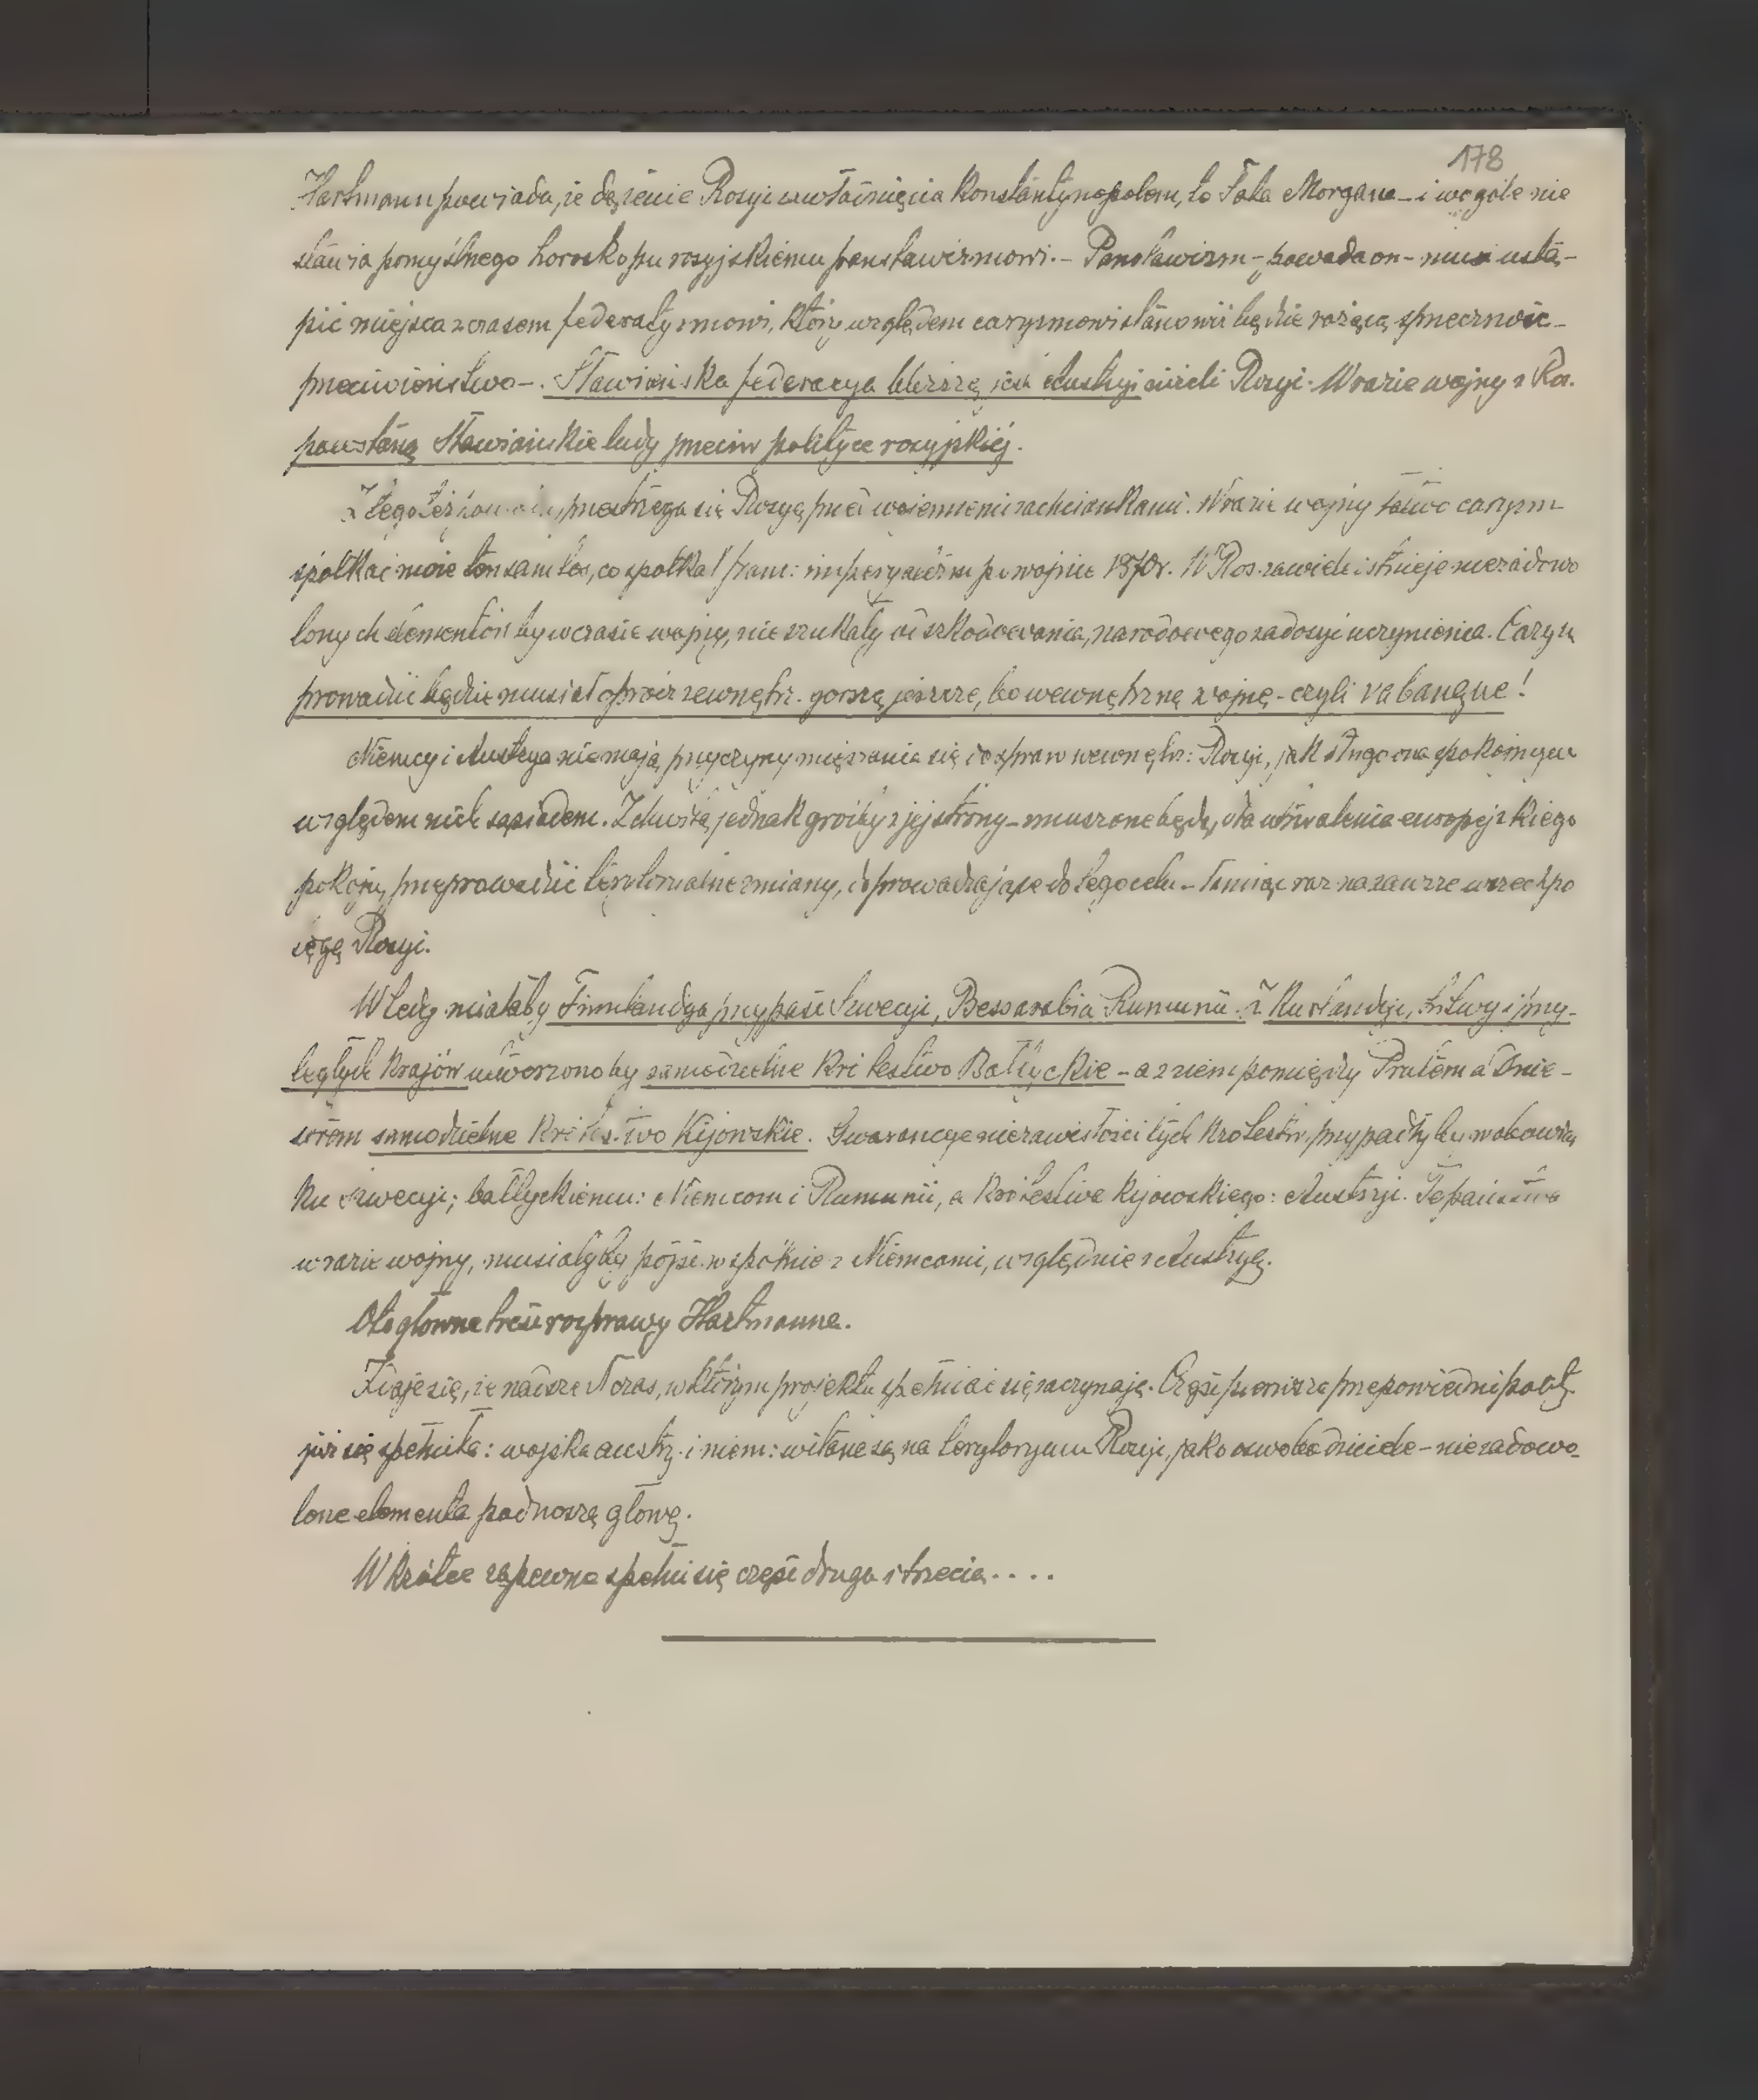 178
Hartmann powiada, że dążenie Rosyi zawłaśnięcia Konstantynopolem, to Fata Morgana – i wogóle nie
stawia pomyślnego horoskopu rosyjskiemu pansławizmowi. – Pansławizm – powiada on – musi ustą-
pić miejsca z czasem federalyzmowi, który względem caryzmowi stanowić będzie rażącą sprzeczność –
przeciwieństwo –. Sławiańska federacya bliższą jest Austryi aniżeli Rosyi. W razie wojny z Ros.
powstaną Sławiańskie ludy przeciw polityce rosyjskiéj.
Z tego też przestrzega się Rosyę, przed wojennemi zachciankami. W razie wojny łatwo caryzm
spotkać może ten sam los, co spotkał franc: imperyalizm po wojnie 1870 r. W Ros. zawiele istnieje niezadowo
lonych elementów by w czasie wojny, nie szukały odszkodowania, narodowego zadosyćuczynienia. Caryzm
prowadzić będzie musiał oprócz zewnętrz. gorszą jeszcze, bo wewnętrzną wojnę – czyli va banque!
Niemcy i Austrya nie mają przyczyny mięszania się do spraw wewnętrz: Rosyi, jak długo ona spokojnym
względem nich sąsiadem. Z chwilą jednak groźby z jej strony – zmuszone będą, dla utrwalenia europejskiego
pokoju, przeprowadzić terytorialne zmiany, doprowadzające do tego celu – łamiąc raz na zawsze wszechpo
tęgę Rosyi.
Wtedy miałaby Finnlandya przypaść Szwecyi, Bessarabia Rumunii. Z Kurlandyi, Litwy i przy-
ległych krajów utworzonoby samodzielne Królestwo Bałtyckie – a z ziem pomiędzy Prutem a Dnie-
strem samodzielne Królestwo Kijowskie. Gwarancye niezawisłości tych królestw, przypadłyby w obowiąz
ku Szwecyi; bałtyckiemu: Niemcom i Rumunii, a Królestwa Kijowskiego: Austryi. Te państwa
w razie wojny, musiałyby pójść wspólnie z Niemcami, względnie z Austryą.
Oto główna treść rozprawy Hartmanna.
Zdaje się, że nadszedł czas, w którym projekta spełniać się zaczynają. Część pierwsza przepowiedni polit.
już się spełniła: wojska austr. i niem: witane są na terytoryum Rosyi, jako oswobodziciele – niezadowo-
lone elementa podnoszą głowę.
Wkrótce zapewne spełni się część druga i trzecia....